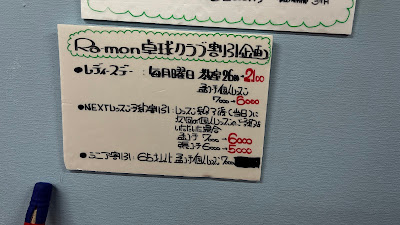 Ramon 卓球クラブ割引企画
●レディースデー 毎月曜日 教室2600→2100
孟子個人レッスン
7000→6000
●NEXTレッスン予約割引:レッスン終了後(当日)に
次回の個人レッスンのご予約を
いただいた場合
孟子 7000→6000
5000
●シニア割引:65才以上 孟子個人レッスン7000